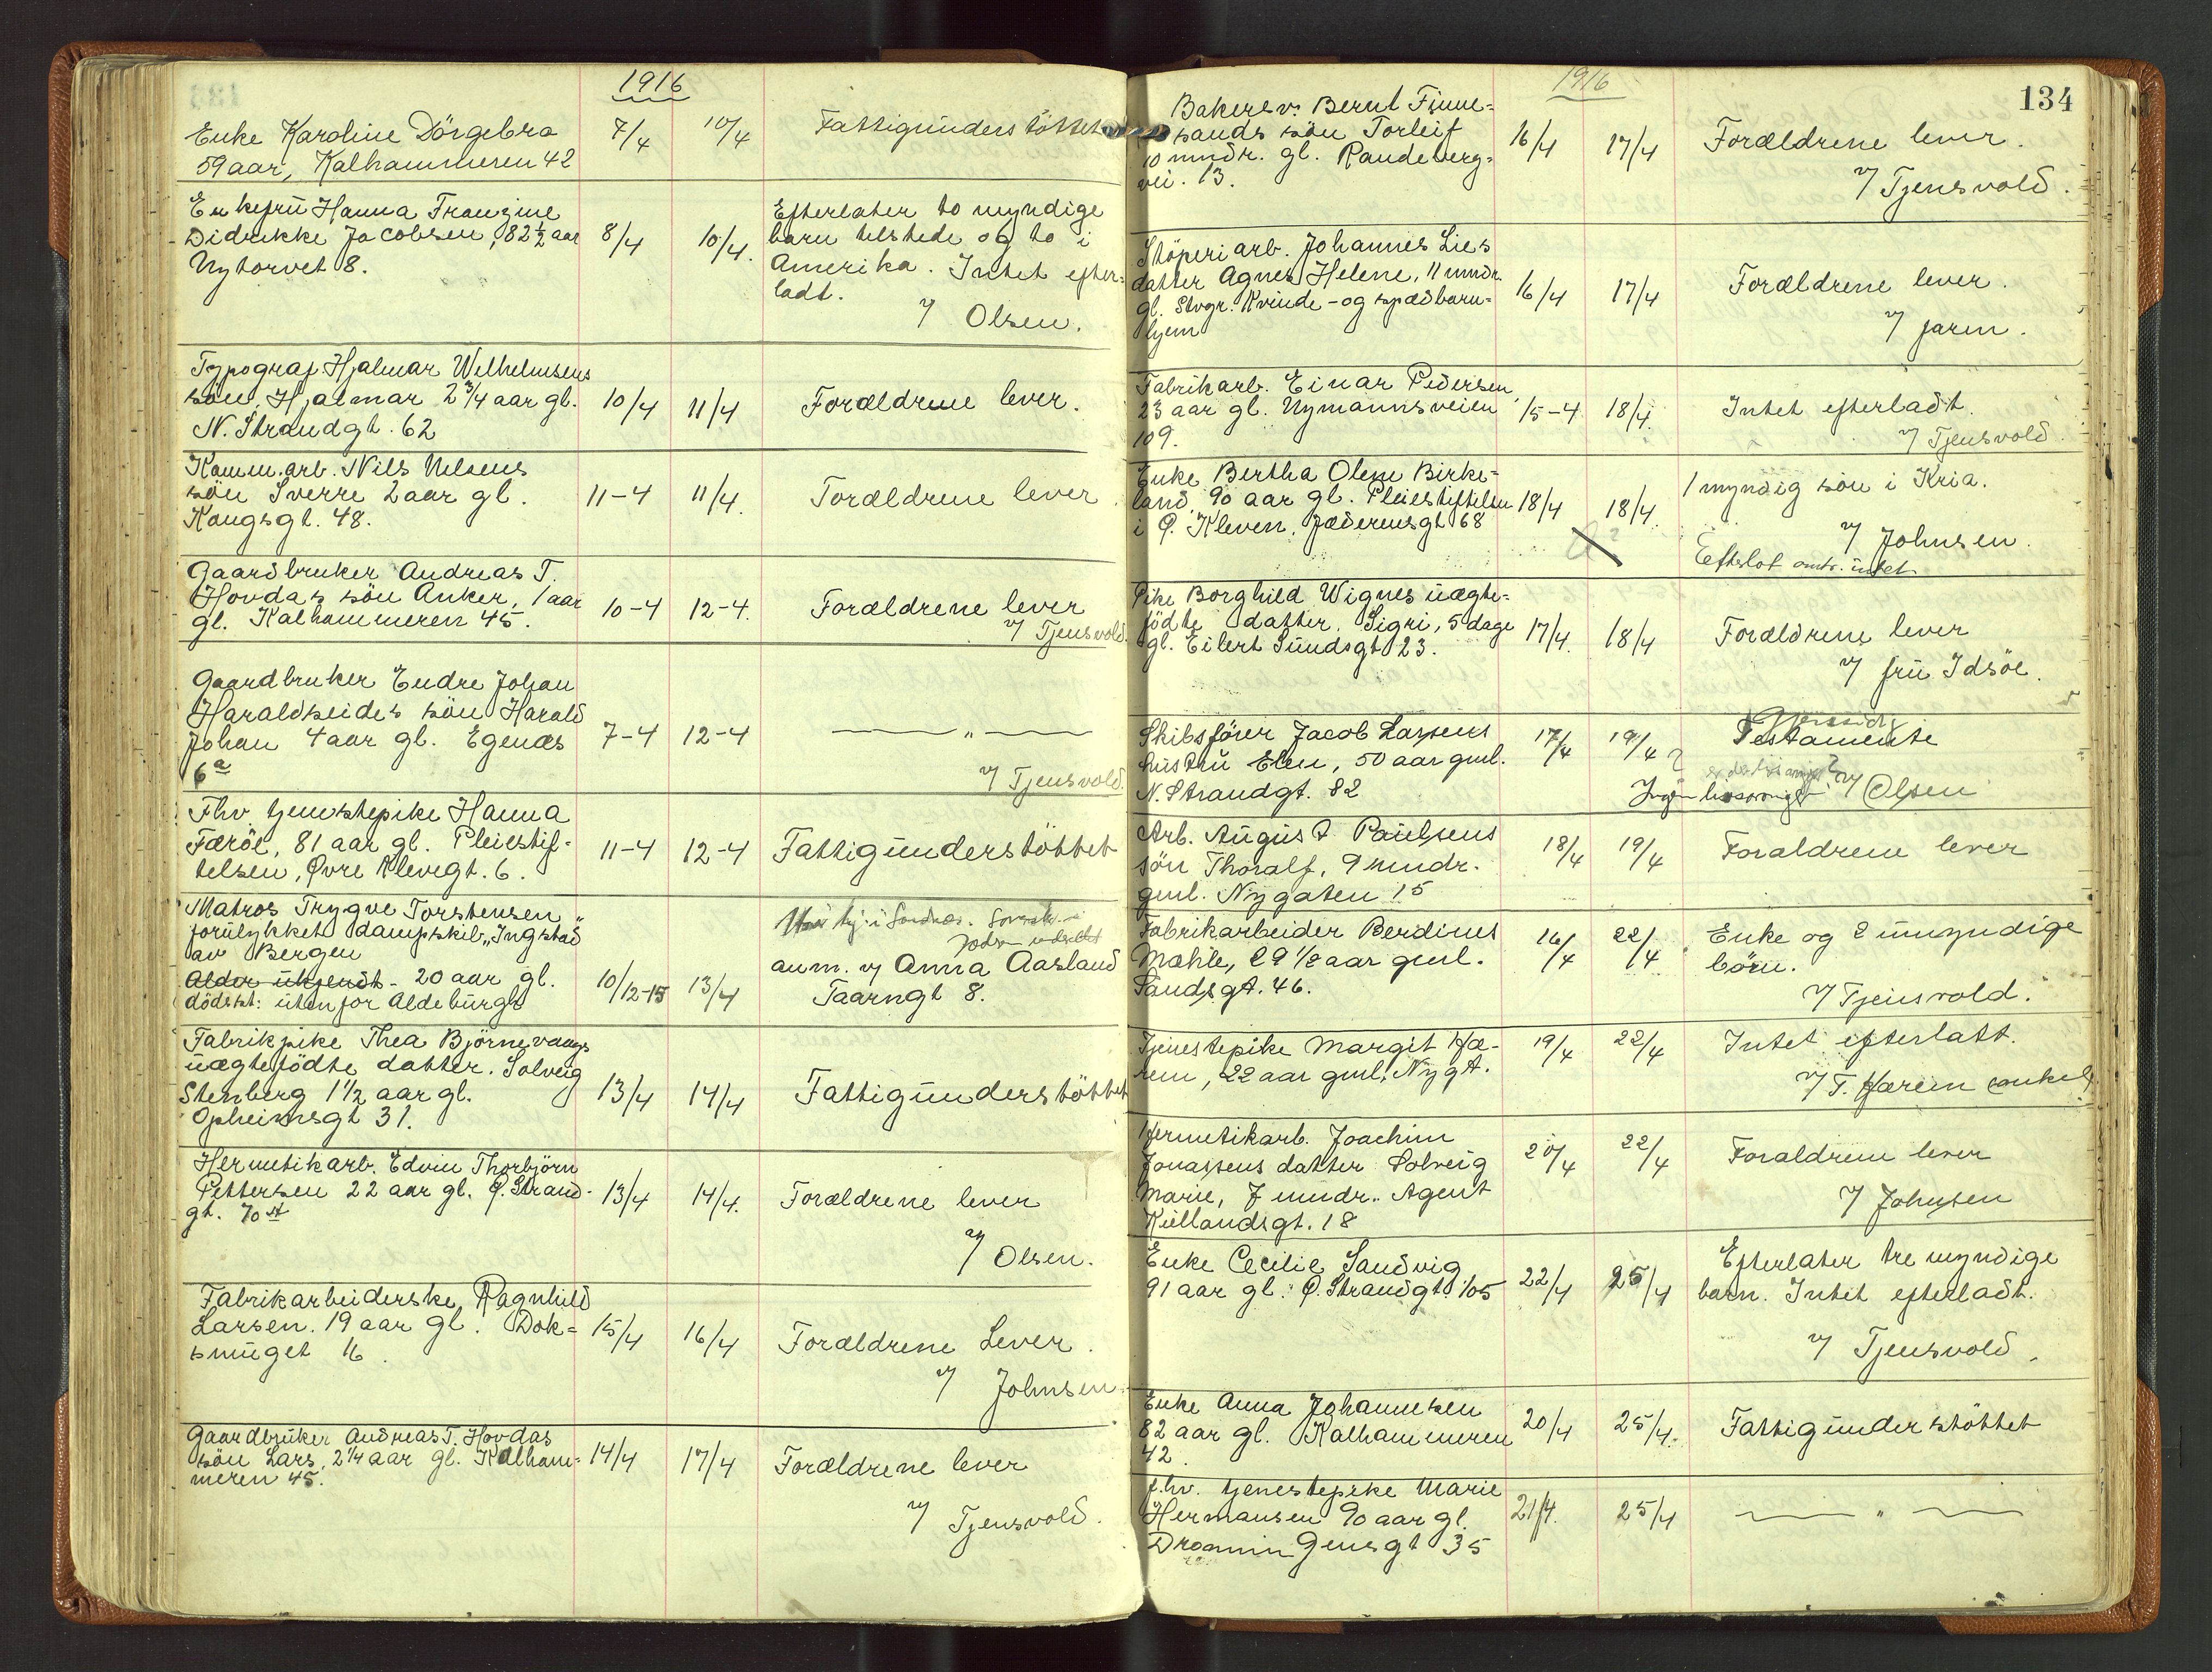 1916
Enke Karoline Dörgebra
59 aar, Kalhammeren 42
7/4 10/4
Fattigunderstöttet
Enkefru Hanna Franzine
Didrikke Jacobsen, 82½ aar
Nytorvet 8.
8/4 10/4.
Efterlater to myndige
barn tilstede og to i
Amerika. Intet efter-
ladt.
v/ Olsen.
Typograf Hjalmar Wilhelmsens
sön, Hjalmar 2 3/4 aar gl.
N. Strandgt. 62
10/4 11/4
Forældrene lever.
Komm.arb. Nils Nilsens
sön Sverre 2 aar gl.
Kongsgt. 48.
11-4 11/4.
Forældrene lever.
Gaardbruker Andreas T.
Hovdas sön Anker, 1 aar
gl. Kalhammeren 45.
10-4 12-4.
Forældrene lever
v/ Tjensvold.
Gaardbruker Endre Johan
Haraldseides sön Harald
Johan 4 aar gl. Egenæs
6a
7-4 12-4
— " —
v/ Tjensvold.
Fhv. tjenestepike Hanna
Færöe, 81 aar gl. Pleiestif-
telsen, Øvre Klevegt. 6.
11-4 12-4
Fattigunderstöttet
Matros Trygve Torstensen
forulykket dampskib „Ingstad"
av Bergen
Alder ukjendt - 20 aar gl.
dödsst: utenfor Aldeburgh
10/12-15 13/4
anm. v/ Anna Aasland
Taarngt 8.
Fabrikpike Thea Björnevaags
uægtefödte datter. Solveig
Stenberg 1½ aar gl.
Opheimsgt 31.
13/4 14/4
Fattigunderstöttet
Hermetikarb. Edvin Thorbjörn
Pettersen 22 aar gl. Ø. Strand-
gt. 70
13/4 14/4.
Forældrene lever
v/ Olsen.
Fabrikarbeiderske Ragnhild
Larsen. 19 aar gl. Dok-
smuget 16.
15/4 16/4
Forældrene Lever.
v/ Johnsen.
Gaardbruker Andreas T. Hovdas
sön Lars, 2¼ aar gl. Kalham-
meren 45.
14/4 17/4
Forældrene lever
v/ Tjensvold.
1916
134
Bakersv. Bernt Finne-
sands sön Torleif
10 mndr. gl. Randeberg-
vei. 13.
16/4 17/4
Forældrene lever.
v/ Tjensvold.
Stöperiarb. Johannes Lies
datter Agnes Helene, 11 mndr.
gl. Stvgr. Kvinde- og spædbarn-
hjem
16/4 17/4
Forældrene lever.
v/ Jarm.
Fabrikarb. Einar Pedersen,
23 aar gl. Nymannsveien
109.
15-4 18/4.
Intet efterladt.
v/ Tjensvold.
Enke Bertha Olene Birke-
land, 90 aar gl. Pleiestiftelsen
i Ø. Kleven, Jæderensgt 68
18/4 18/4.
1 myndig sön i Kria.
v/ Johnsen.
Efterlot omtr. intet.
Pike Borghild Wignes uægte-
födte datter. Sigri, 5 dage
gl. Eilert Sundsgt 23.
17/4. 18/4
Forældrene lever
v/ fru Idsöe.
Skibsförer Jacob Larsens
hustru Elen, 50 aar gml.
N. Strandgt. 82
17/4 19/4
Gjensidig
Testamente
Ingen livsarvinger v/ Olsen
Arb. August Paulsens
sön Thoralf, 9 mndr.
gml. Nygaten 15
18/4 19/4
Forældrene lever
Fabrikarbeider Berdines
Mæhle, 29 ½ aar gml.
Sandsgt. 46.
16/4 22/4
Enke og 2 umyndige
börn.
v/ Tjensvold.
Tjenestepike Margit Hæ-
rem, 22 aar gml, Nygt.
19/4 22/4
Intet efterlatt.
v/ T. Hærem (onkel)
Hermetikarb. Joachim
Jonassens datter Solveig
Marie, 7 mndr. Agent
Kiellandsgt. 18
20/4 22/4
Forældrene lever
v/ Johnsen
Enke Cecilie Sandvig
91 aar gl. Ø. Strandgt. 105
22/4 25/4
Efterlater tre myndige
barn. Intet efterladt.
v/ Tjensvold.
Enke Anna Johannesen
82 aar gl. Kalhammeren
42.
20/4 25/4.
Fattigunderstöttet
f.hv. tjenestepike Marie
Hermansen 90 aar gl.
Dronningensgt 35
21/4. 25/4
— " —